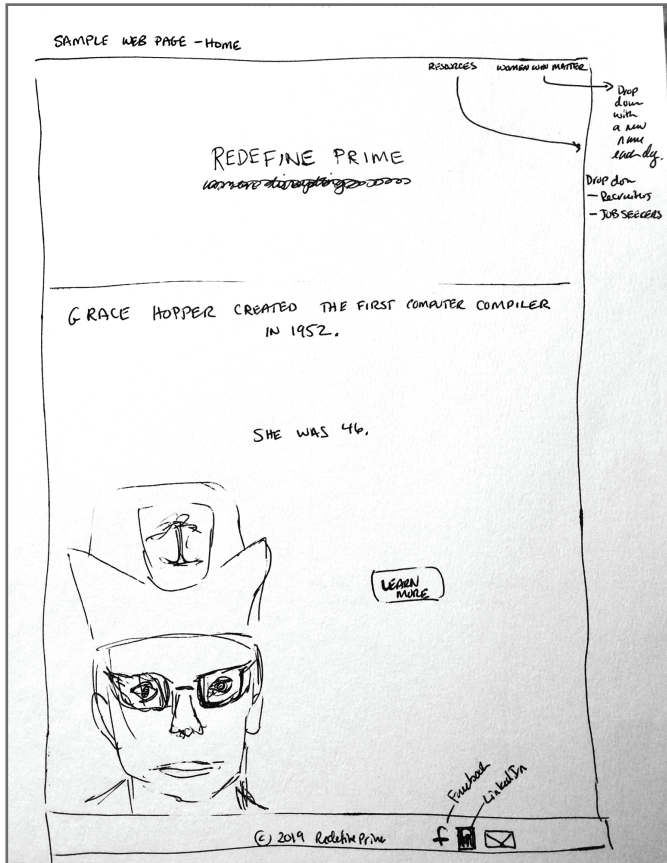 SAMPLE WEB PAGE - HOME
RESOURCES WOMEN WHO MATTER
Drop
down
with
a new
name
each day.
Drop down
- Recruiters
- JOB SEEKERS
REDEFINE PRIME
GRACE HOPPER CREATED THE FIRST COMPUTER COMPILER
IN 1952.
SHE WAS 46.
LEARN
MORE
Facebook
LinkedIn
(c) 2019 RedefinePrime f in